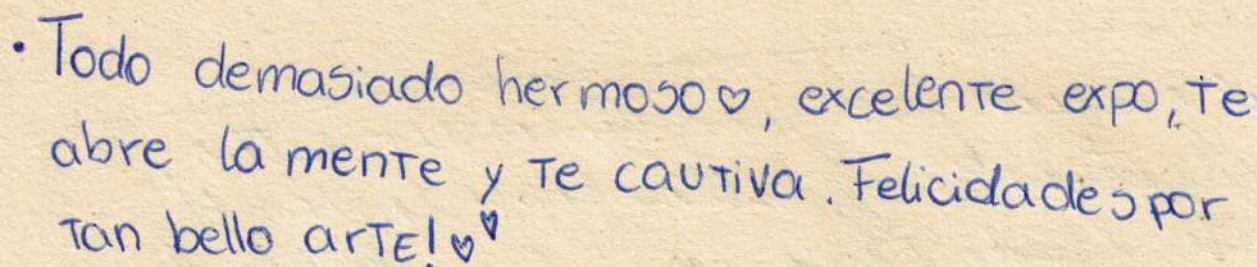 · Todo demasiado hermoso♡, excelente expo, te
abre la mente y te cautiva. Felicidades por
tan bello arte!♡♡